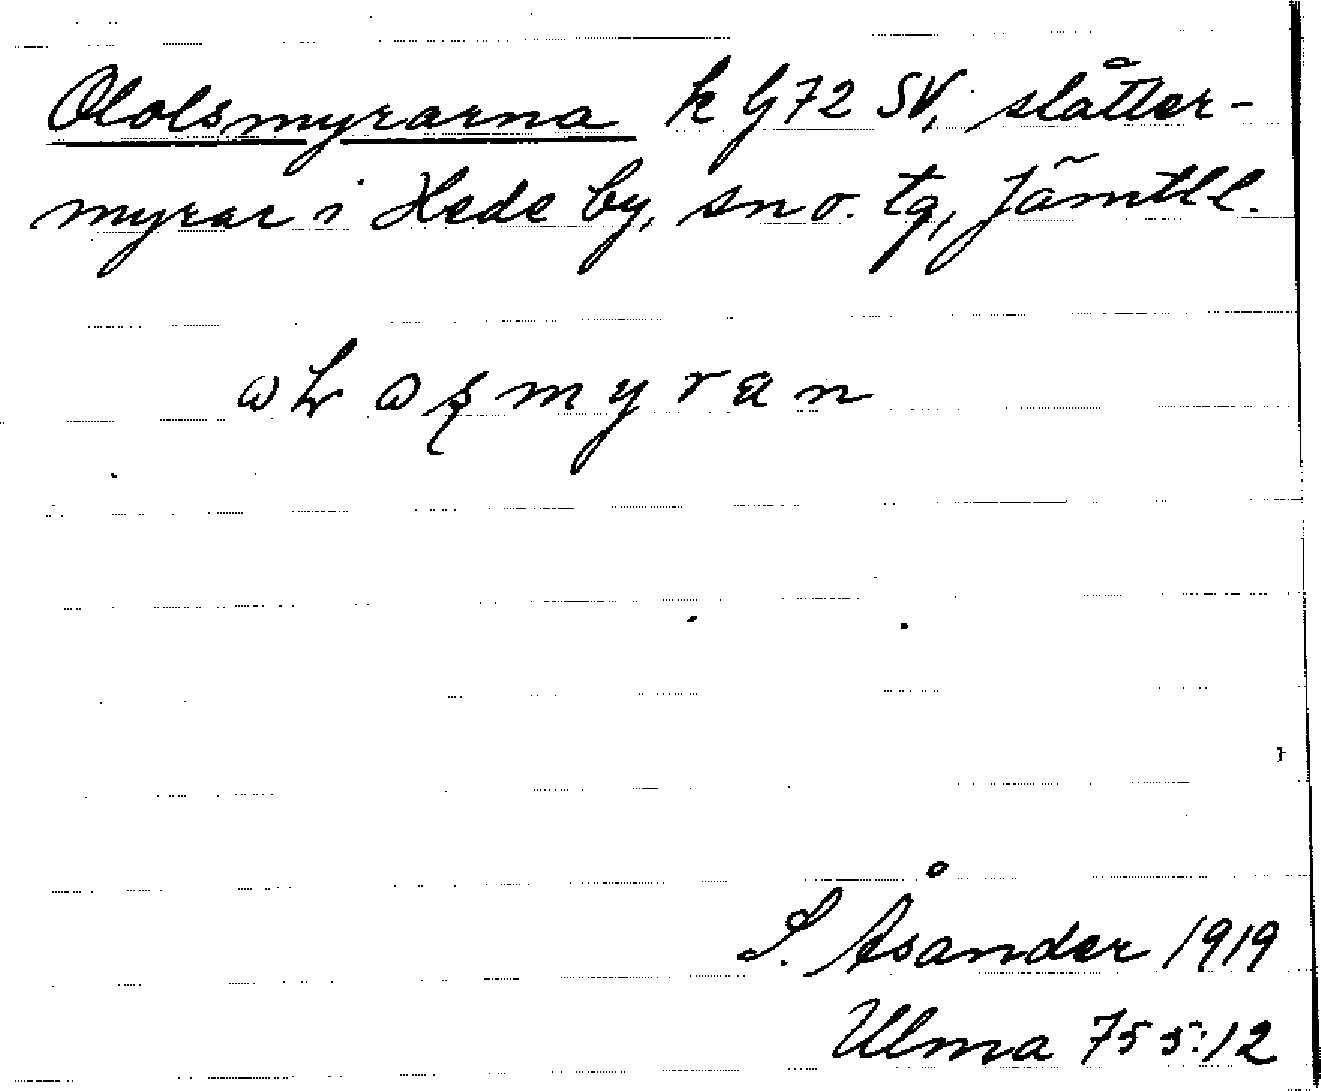 Ololsmyrarna k G72 SV, slåtter-
myrar i Hede by, sn o. tg, Jämtl l.
S. Åsander 1919
Ulma 755:12